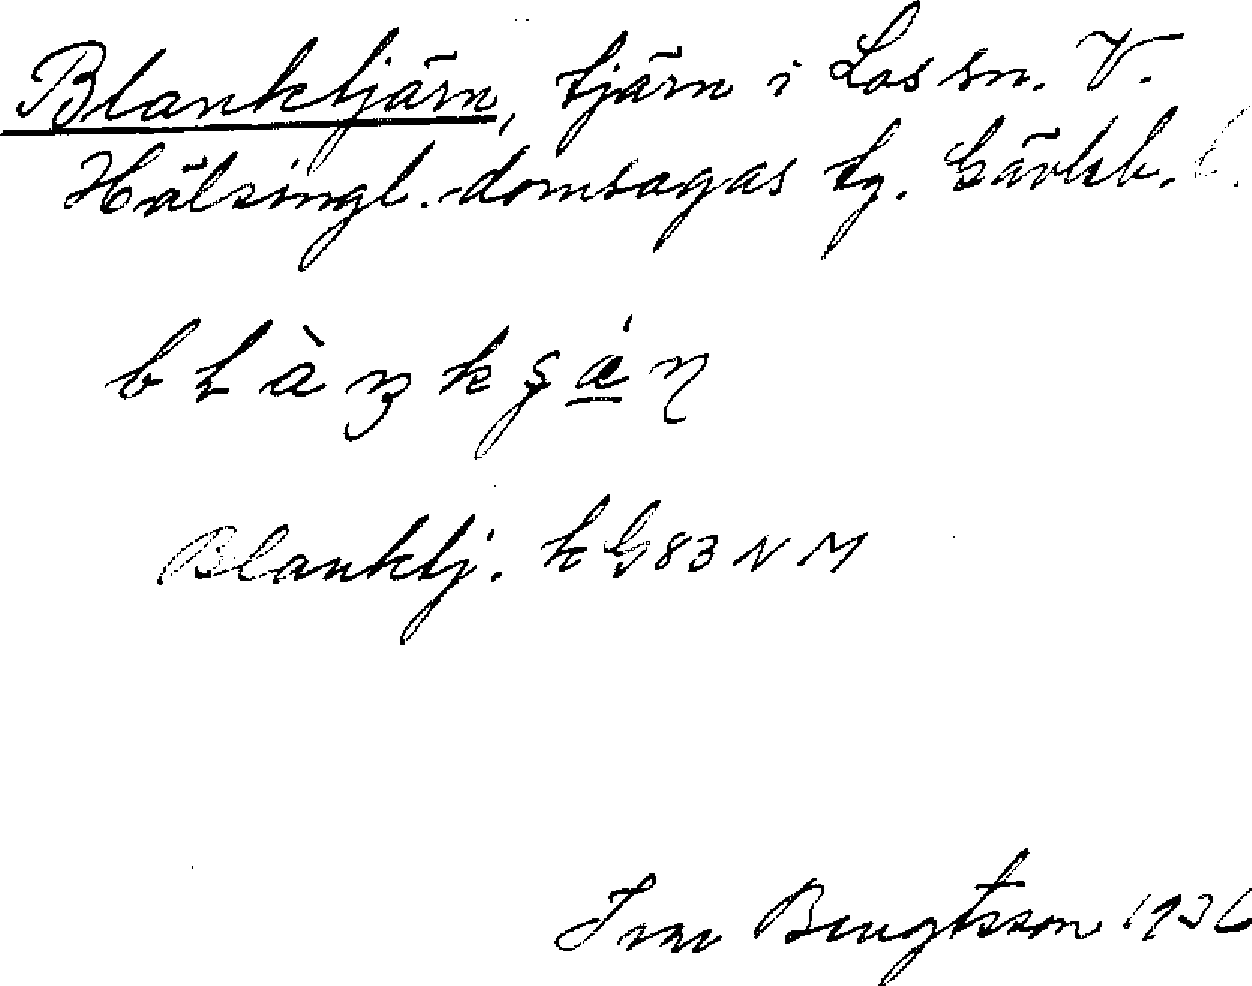 Blanktjärn, tjärn i Los sn. V.
Hälsingl. domsagas tg. Gävleb. l.
blàŋkʂǽɳ
Blanktj. kG83NM
Ivar Bengtsson 1936